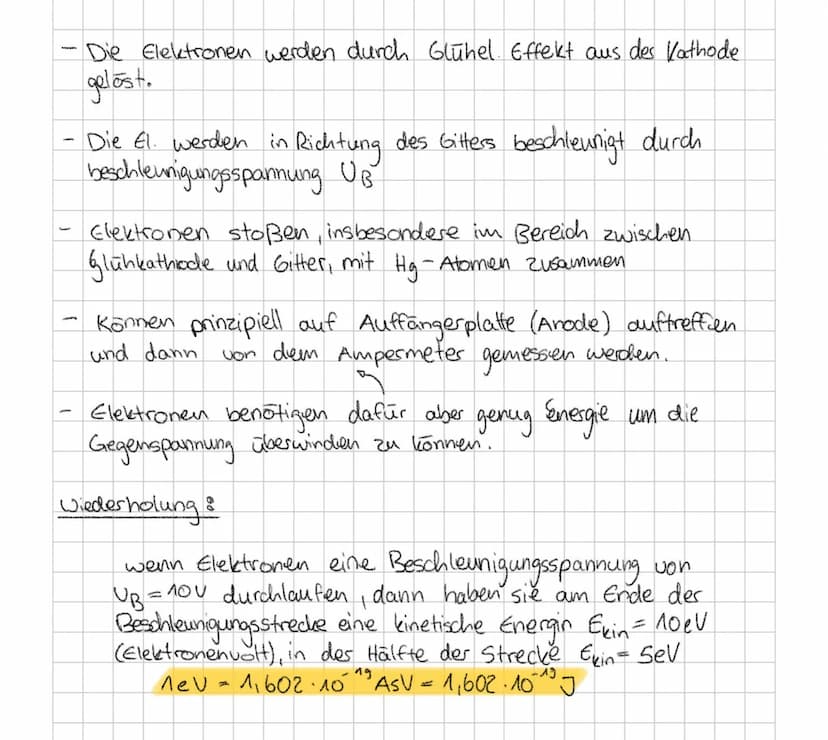 - Die Elektronen werden durch Glühel. Effekt aus des Kathode
gelöst.
- Die El. werden in Richtung des Gitters beschleunigt durch
beschleunigungsspannung UB
- Elektronen stoßen, insbesondere im Bereich zwischen
Glühkathode und Gitter, mit Hg-Atomen zusammen
- Können prinzipiell auf Auffängerplatte (Anode) auftreffen
und dann von dem Ampermeter gemessen werden.
- Elektronen benötigen dafür aber genug Energie um die
Gegenspannung überwinden zu können.
Wiederholung:
wenn Elektronen eine Beschleunigungsspannung von
UB = 10V durchlaufen, dann haben sie am Ende der
Beschleunigungsstrecke eine kinetische Energin Ekin = 10eV
(Elektronenvolt), in des Hälfte der Strecke Ekin = 5eV
1eV = 1,602 · 10⁻¹⁹ AsV = 1,602 · 10⁻¹⁹ J